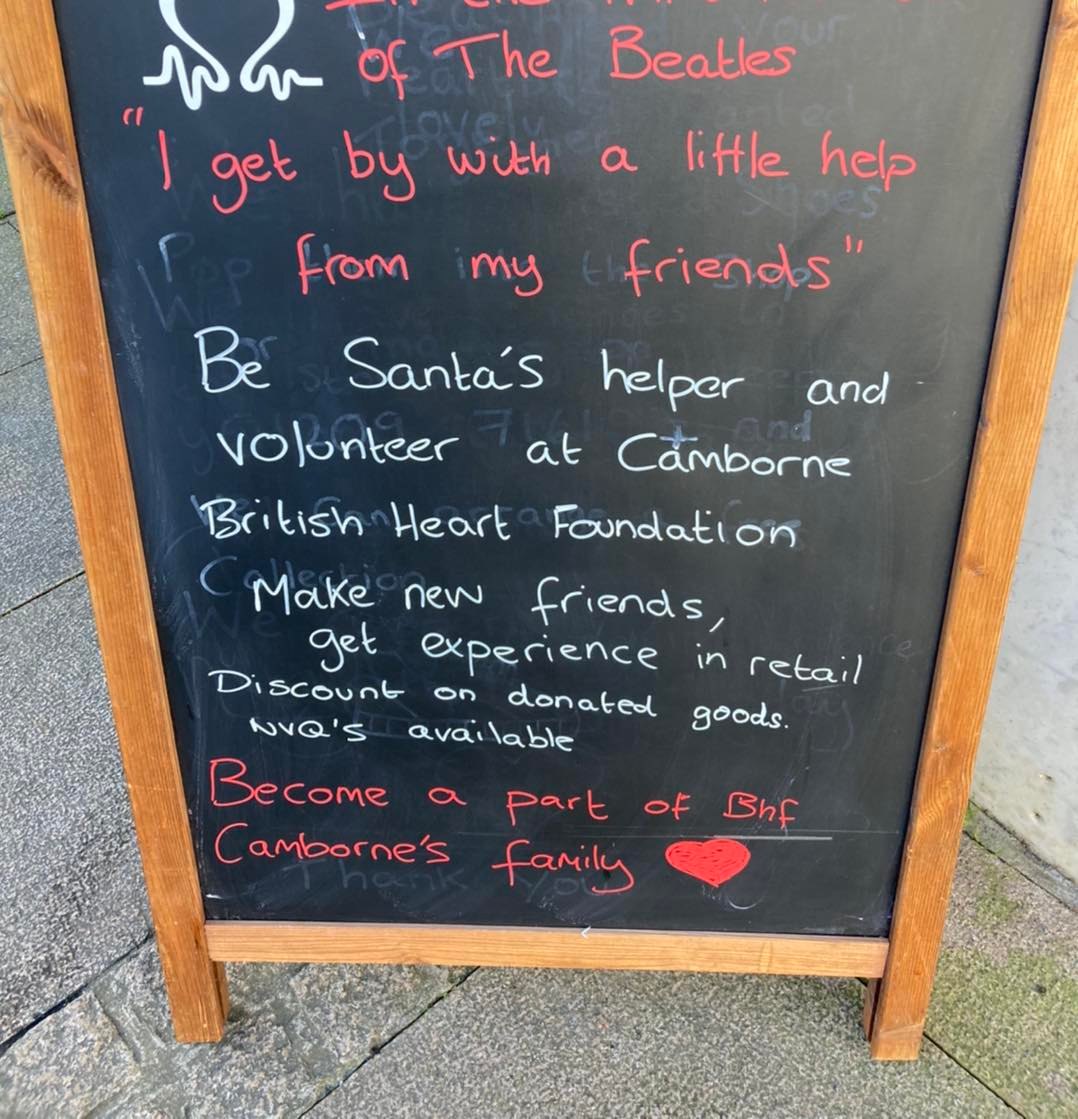 of The Beatles
"I get by with a little help
from my friends"
Be Santa's helper and
volunteer at Camborne
British Heart Foundation
Make new friends,
get experience in retail
Discount on donated goods.
NVQ's available
Become a part of Bhf
Camborne's family
Thank You